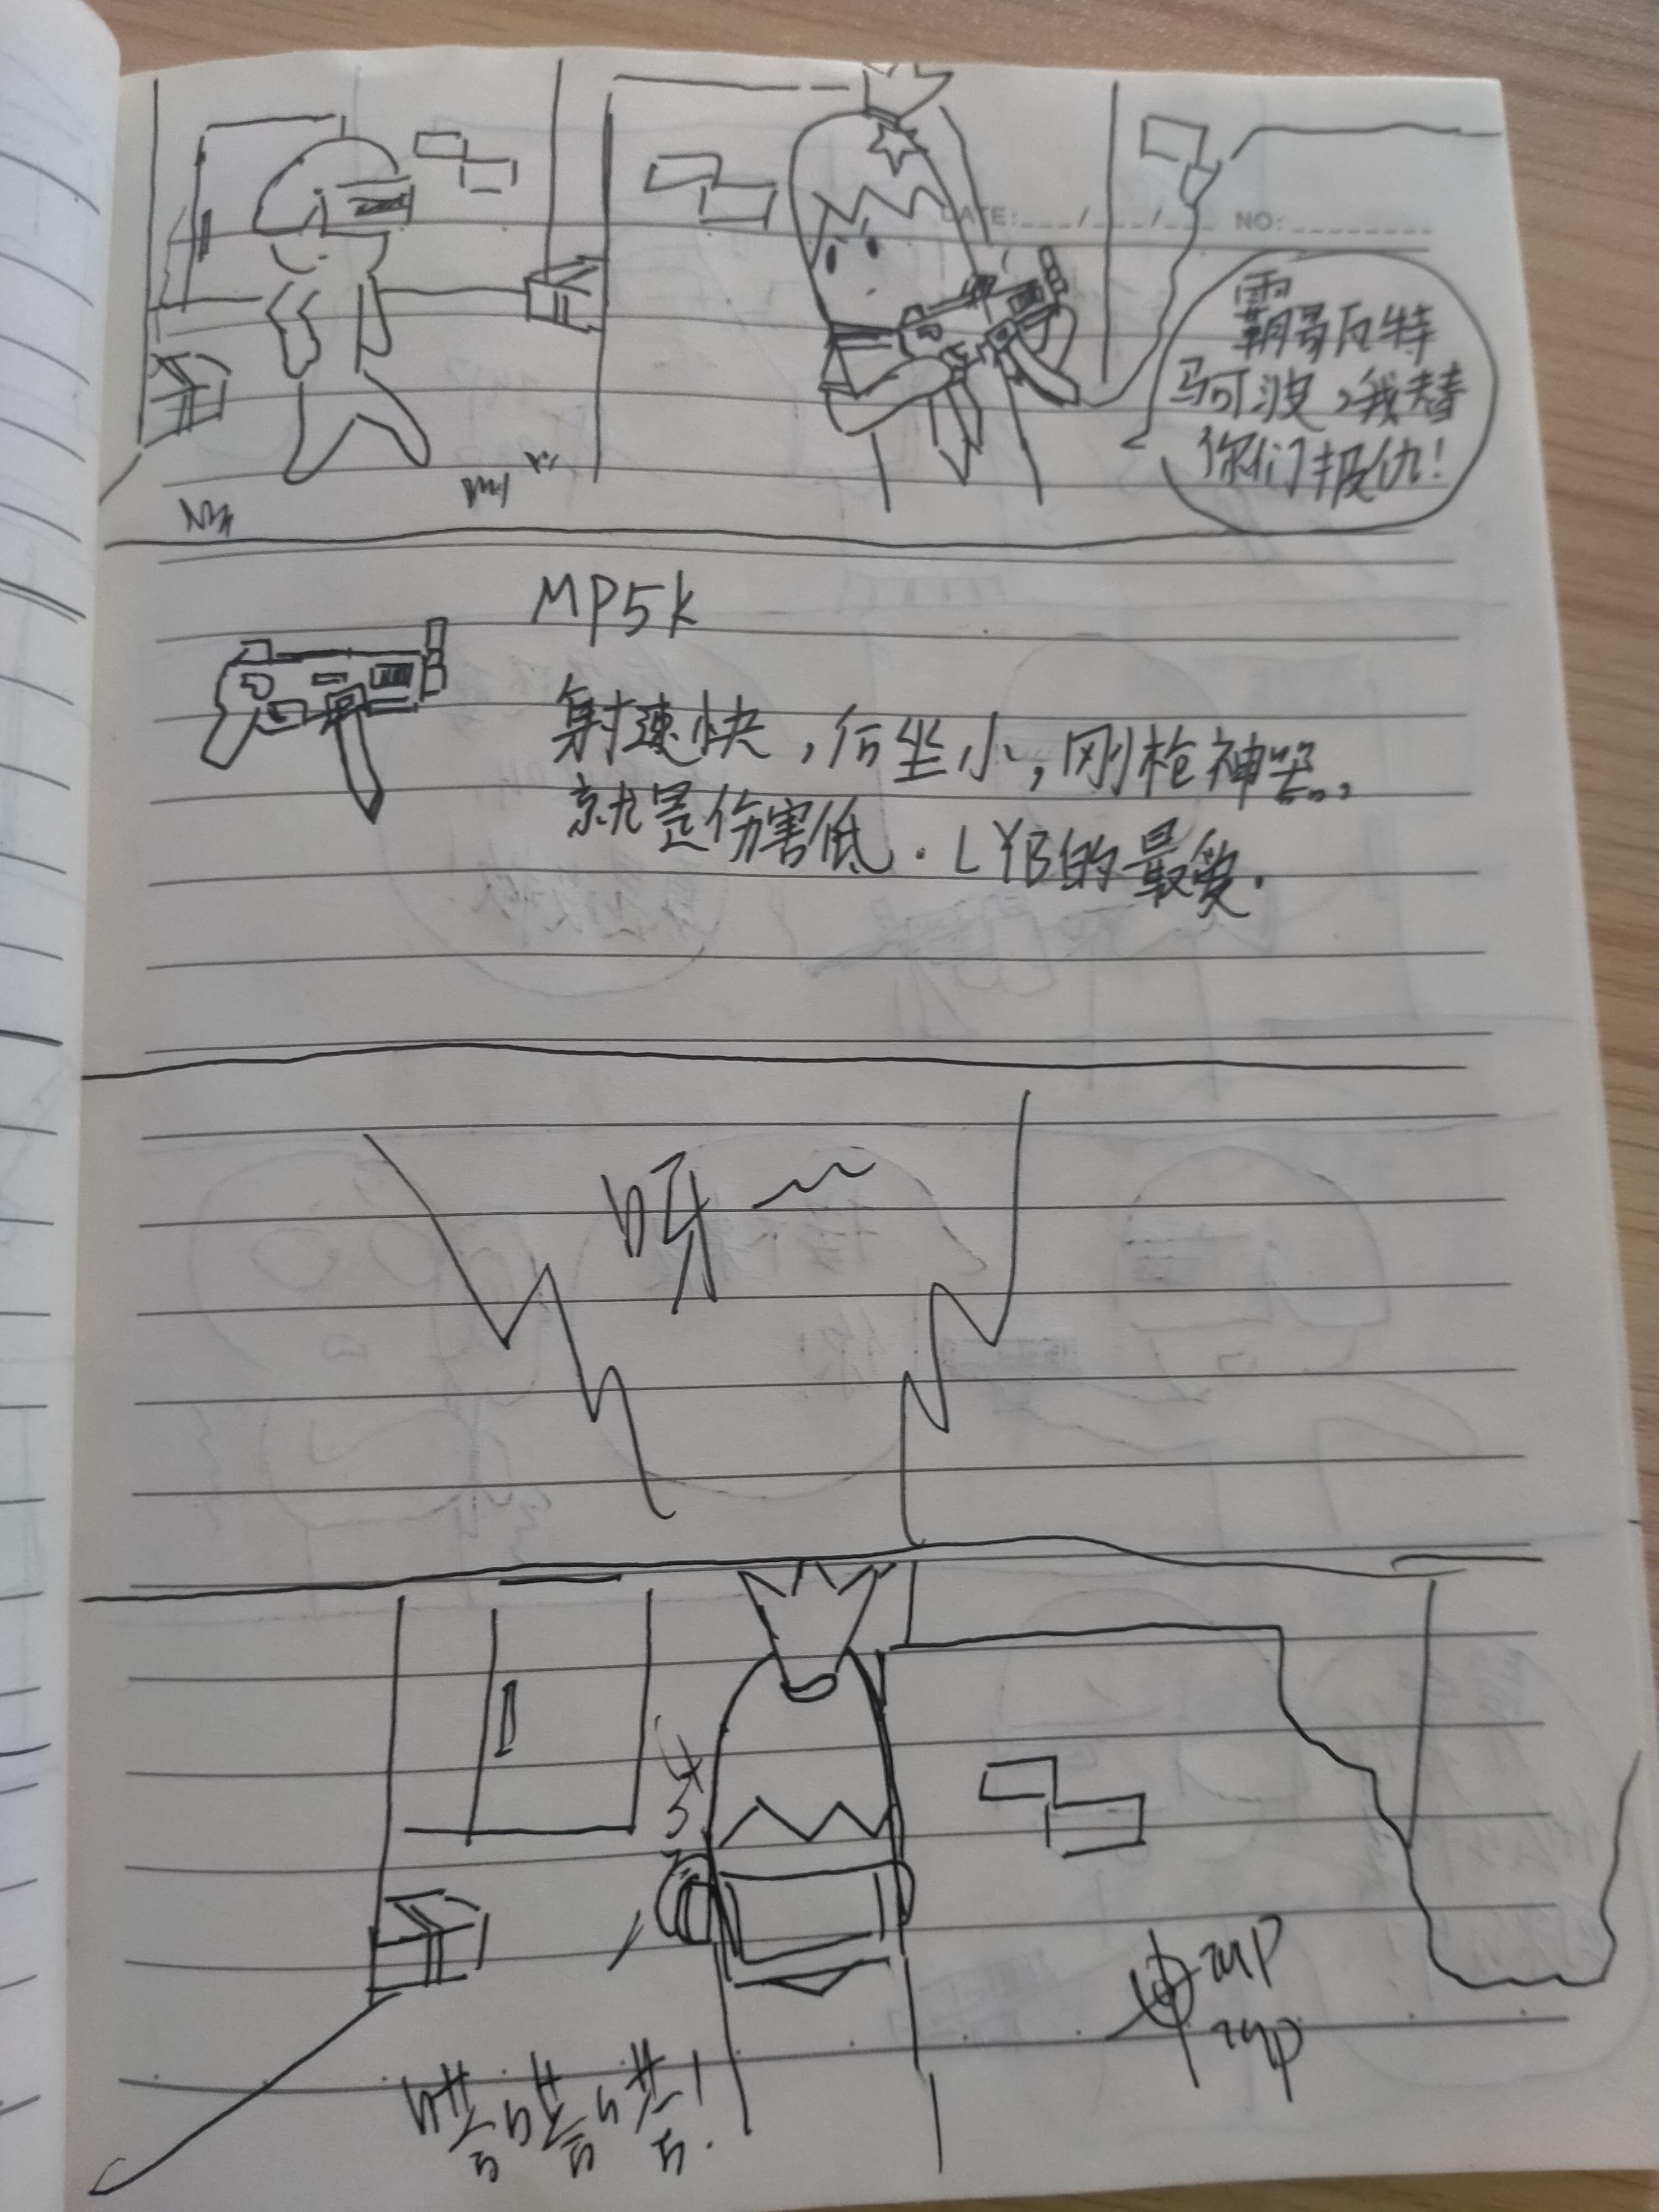 DATE:___/___/___ NO:________
霸哥反特
马可波，我替
你们报仇！
MP5K
射速快，后坐小，刚枪神器，
就是伤害低．LYB的最爱．
呀～
哒哒哒！